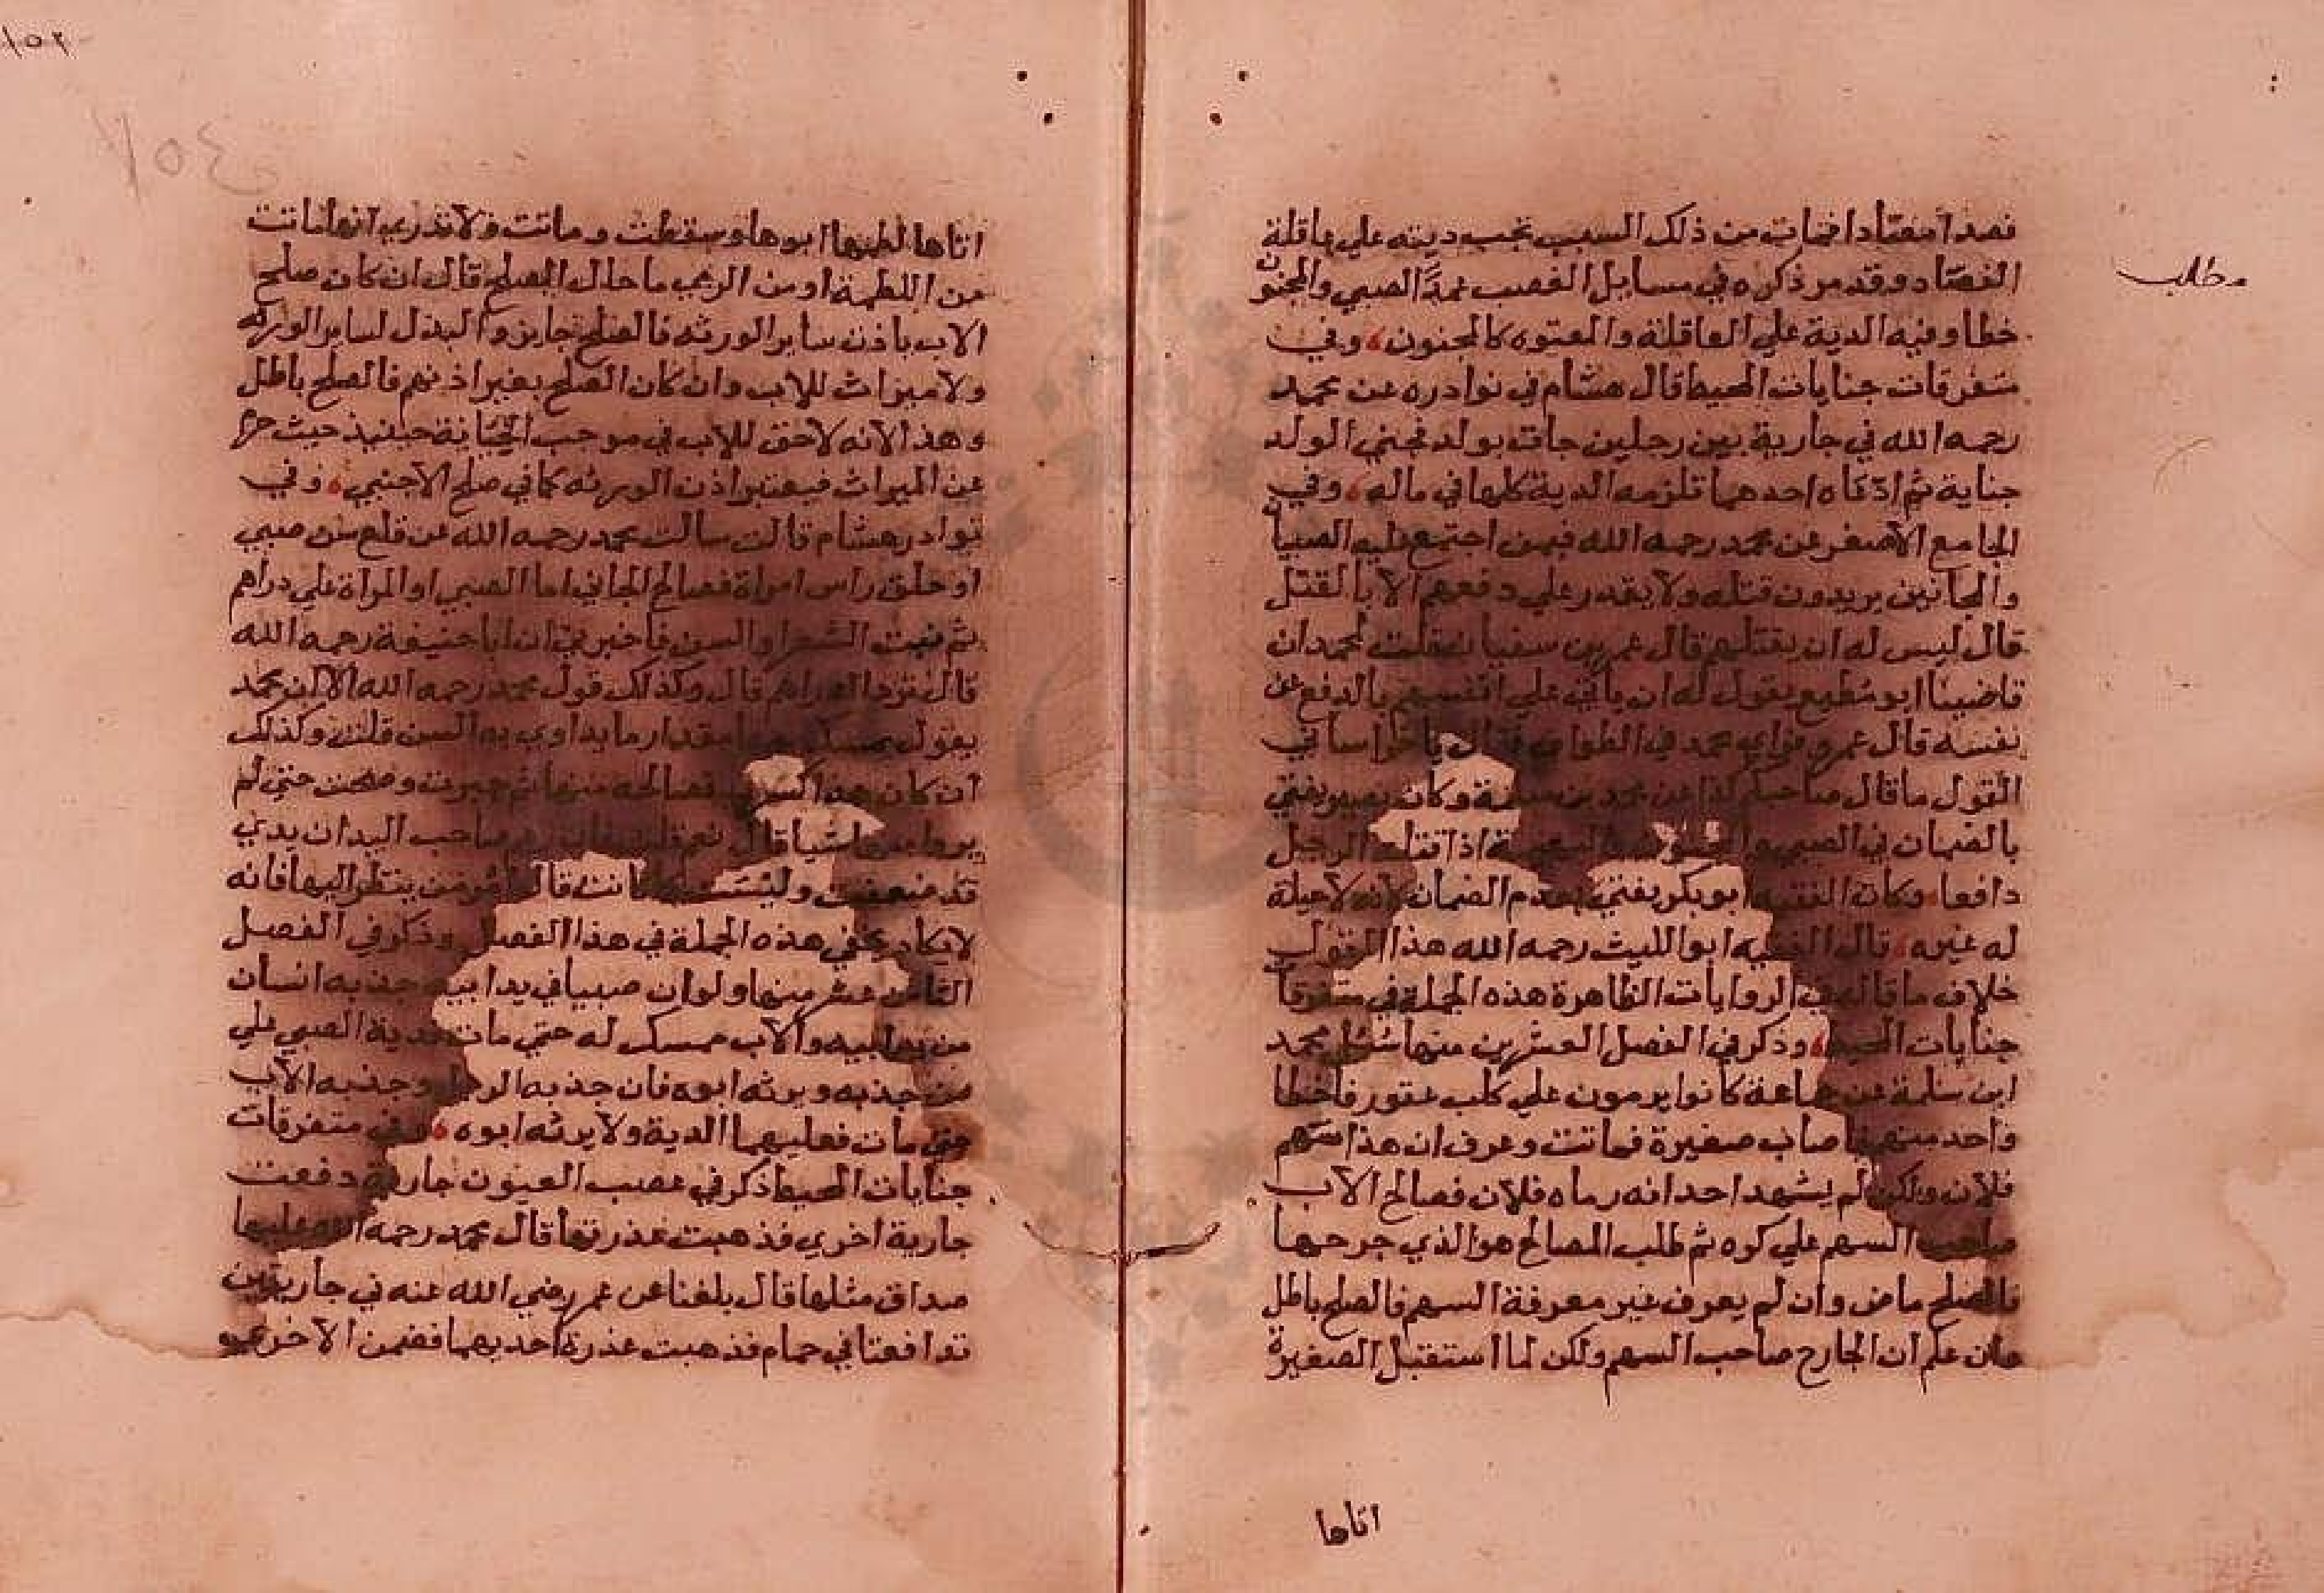 فصدا معتادا فمات من ذلك السبب تجب ديته علي عاقلة
مطلب
الفصاد وقد مر ذكره في مسايل الغصب عمد الصبي والمجنون
خطا وفيه الدية علي العاقلة والمعتوه كالمجنون وفي
متفرقات جنايات المحيط قال هشام في نوادره عن محمد
رحمه الله في جارية بين رجلين جات بولد فجني الولد
جناية ثم ادعاه احدهما تلزمه الدية كلها في ماله وفي
الجامع الاصغر عن محمد رحمه الله فيمن اجتمع عليه الصبيان
والمجانين يريدون قتله ولا يقدر علي دفعهم الا بالقتل
قال ليس له ان يقتلهم قال عمر بن سفيان فقلت لمحمد ان
قاضينا ابو مطيع يقول له ان ياتي علي انفسهم بالدفع عن
نفسه قال عمر فراي محمد في الطواف فقال يا خراساني
القول ما قال صاحبكم كذا عن محمد بن سلمة وكان نصير يفتي
بالضمان في الصبي اذا قتله الرجل
دافعا وكان الفقيه ابو بكر يفتي بعدم الضمان لانه لا حيلة
له غيره قال الفقيه ابو الليث رحمه الله هذا القول
خلاف ما قاله في الروايات الظاهرة هذه الجملة في متفرقات
جنايات المحيط وذكر في الفصل العشرين منها سئل محمد
ابن سلمة عن جماعة كانوا يرمون علي كلب عقور فاخطا
واحد منهم فاصاب صغيرة فماتت وعرف ان هذا سهم
فلان ولكن لم يشهد احد انه رماه فلان فصالح الاب
صاحب السهم علي كره ثم طلب المصالح هو الذي جرحها
فالصلح ماض وان لم يعرف غير معرفة السهم فالصلح باطل
وان علم ان الجارح صاحب السهم ولكن لما استقبل الصغيرة
اتاها
١٥٢
١٥٤
اتاها لطمها ابوها وسقطت وماتت ولا تدري انها ماتت
من اللطمة او من الرمي ما حال الصلح قال ان كان صلح
الاب باذن ساير الورثه فالصلح جايز والبدل لساير الورثه
ولا ميراث للاب وان كان الصلح بغير اذنهم فالصلح باطل
وهذا لانه لا حق للاب في موجب الجناية حينيذ حيث حرم
عن الميراث فيعتبر اذن الورثه كما في صلح الاجنبي وفي
نوادر هشام قال سالت محمد رحمه الله عن قلع سن صبي
او حلق راس امراة فصالح الجاني اما الصبي او المراة علي دراهم
ثم نبت الشعر او السن فاخبرني ان ابا حنيفة رحمه الله
قال ترد الدراهم قال وكذلك قول محمد رحمه الله الا ان محمد
يقول يمسك مقدار ما يداوي به السن قلت وكذلك
ان كان هذا فصالحه منها ثم جبرت وصحت حتي لم
ير شيا قال نعم صاحب اليد ان يدي
قد ضعفت وليست كانت قال ينظر اليها فانه
لا يكاد يخفي هذه الجملة في هذا الفصل وذكر في الفصل
الثامن عشر منها ولو ان صبيا في يد ابيه جذبه انسان
من يد ابيه والاب ممسك له حتي مات فدية الصبي علي
من جذبه ويرثه ابوه فان جذبه الرجل وجذبه الاب
حتي مات فعليهما الدية ولا يرثه ابوه وفي متفرقات
جنايات المحيط ذكر في غصب العيون جارية دفعت
جارية اخري فذهبت عذرتها قال محمد رحمه الله عليها
صداق مثلها قال بلغنا عن عمر رضي الله عنه في جاريتين
تدافعتا في حمام فذهبت عذرة احديهما فضمن الاخري